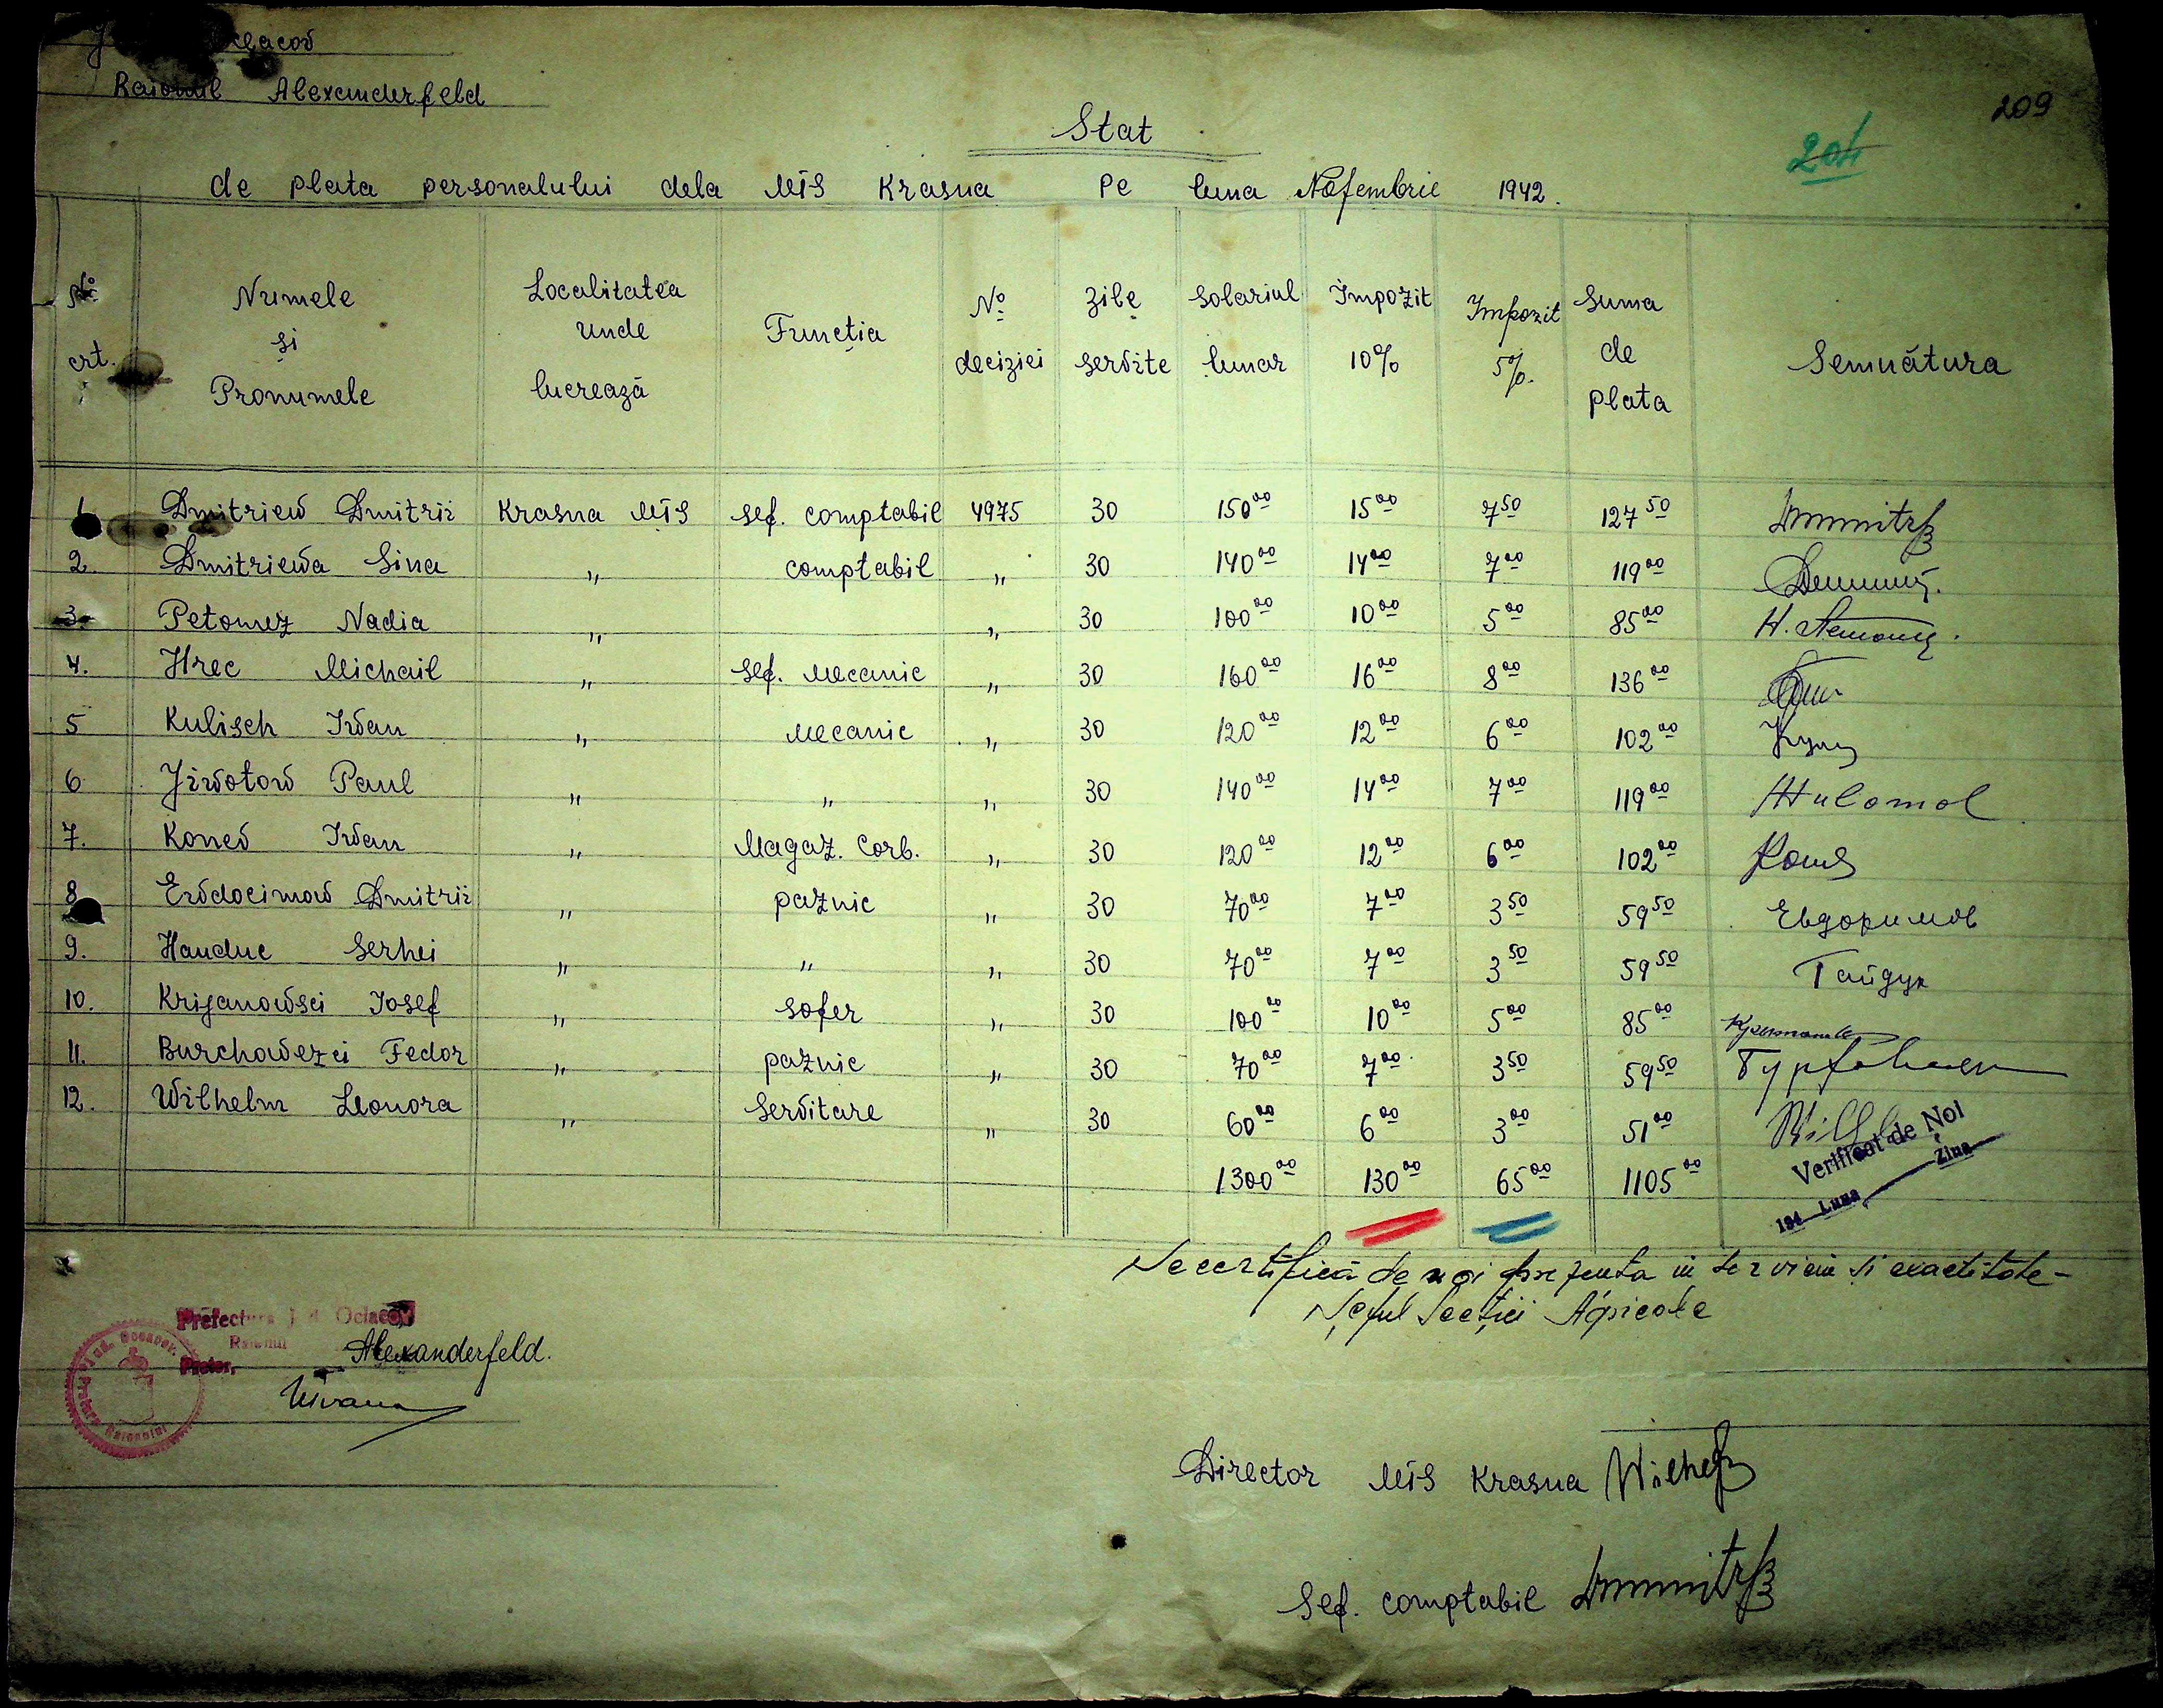 Raionul Alexanderfeld
209
204
Stat
de plata personalului dela MTS Krasna pe luna Nofembrie 1942.
No crt. Numele si Pronumele Localitatea unde lucrează Funcția No deciziei zile servite solariul lunar Impozit 10% Impozit 5%. Suma de plata Semnătura
1 Dmitriew Dmitrii Krasna MTS sef. comptabil 4975 30 150 00 15 00 7 50 127 50
2. Dmitriewa Sina " comptabil " 30 140 00 14 00 7 00 119 00
3. Petomez Nadia " " 30 100 00 10 00 5 00 85 00
4. Hrec Michail " sef. mecanic " 30 160 00 16 00 8 00 136 00
5 Kulisch Iwan " mecanic " 30 120 00 12 00 6 00 102 00
6 Jiwotow Paul " " " 30 140 00 14 00 7 00 119 00
7. Konew Iwan " Magaz. Corb. " 30 120 00 12 00 6 00 102 00
8 Ewdocimow Dmitrii " paznic " 30 70 00 7 00 3 50 59 50 Евдокимов
9. Hauduc Serhei " " " 30 70 00 7 00 3 50 59 50 Гайдук
10. Krijanowsci Josef " sofer " 30 100 00 10 00 5 00 85 00
11. Burchowezci Fedor " paznic " 30 70 00 7 00 3 50 59 50
12. Wilhelm Leonora " servitare " 30 60 00 6 00 3 00 51 00
1300 00 130 00 65 00 1105 00
Verificat de Noi
194 Luna Ziua
Se certifică de noi prezenta in serviciu si exactitate -
Șeful Secției Agricole
Prefectura Jud. Oclacov
Raionul Alexanderfeld.
Pretor,
Director MTS Krasna Wilhelm
Sef. comptabil